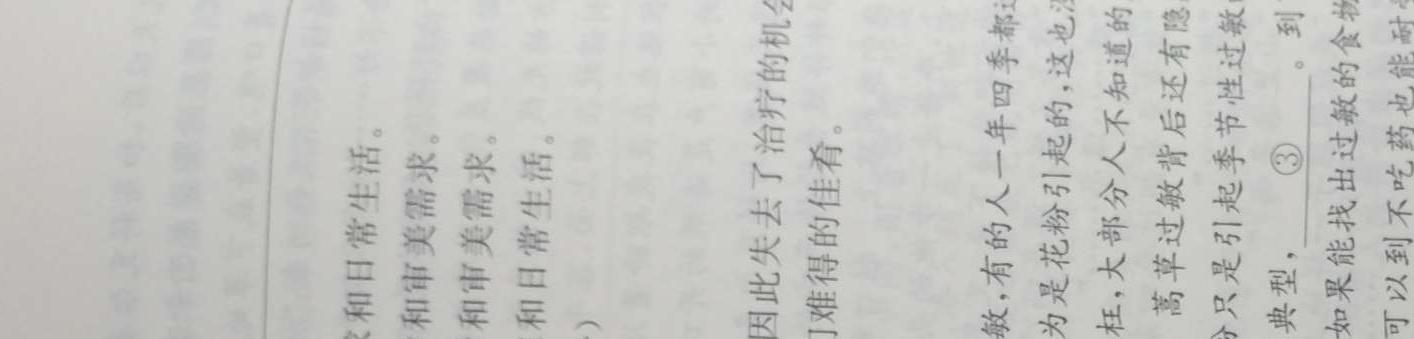 和日常生活。
和审美需求。
和审美需求。
和日常生活。
）
因此失去了治疗的机会
难得的佳肴。
敏,有的人一年四季都
为是花粉引起的,这也
枉,大部分人不知道的
蒿草过敏背后还有隐
只是引起季节性过敏
典型, ③ 。到
如果能找出过敏的食物
可以到不吃药也能耐